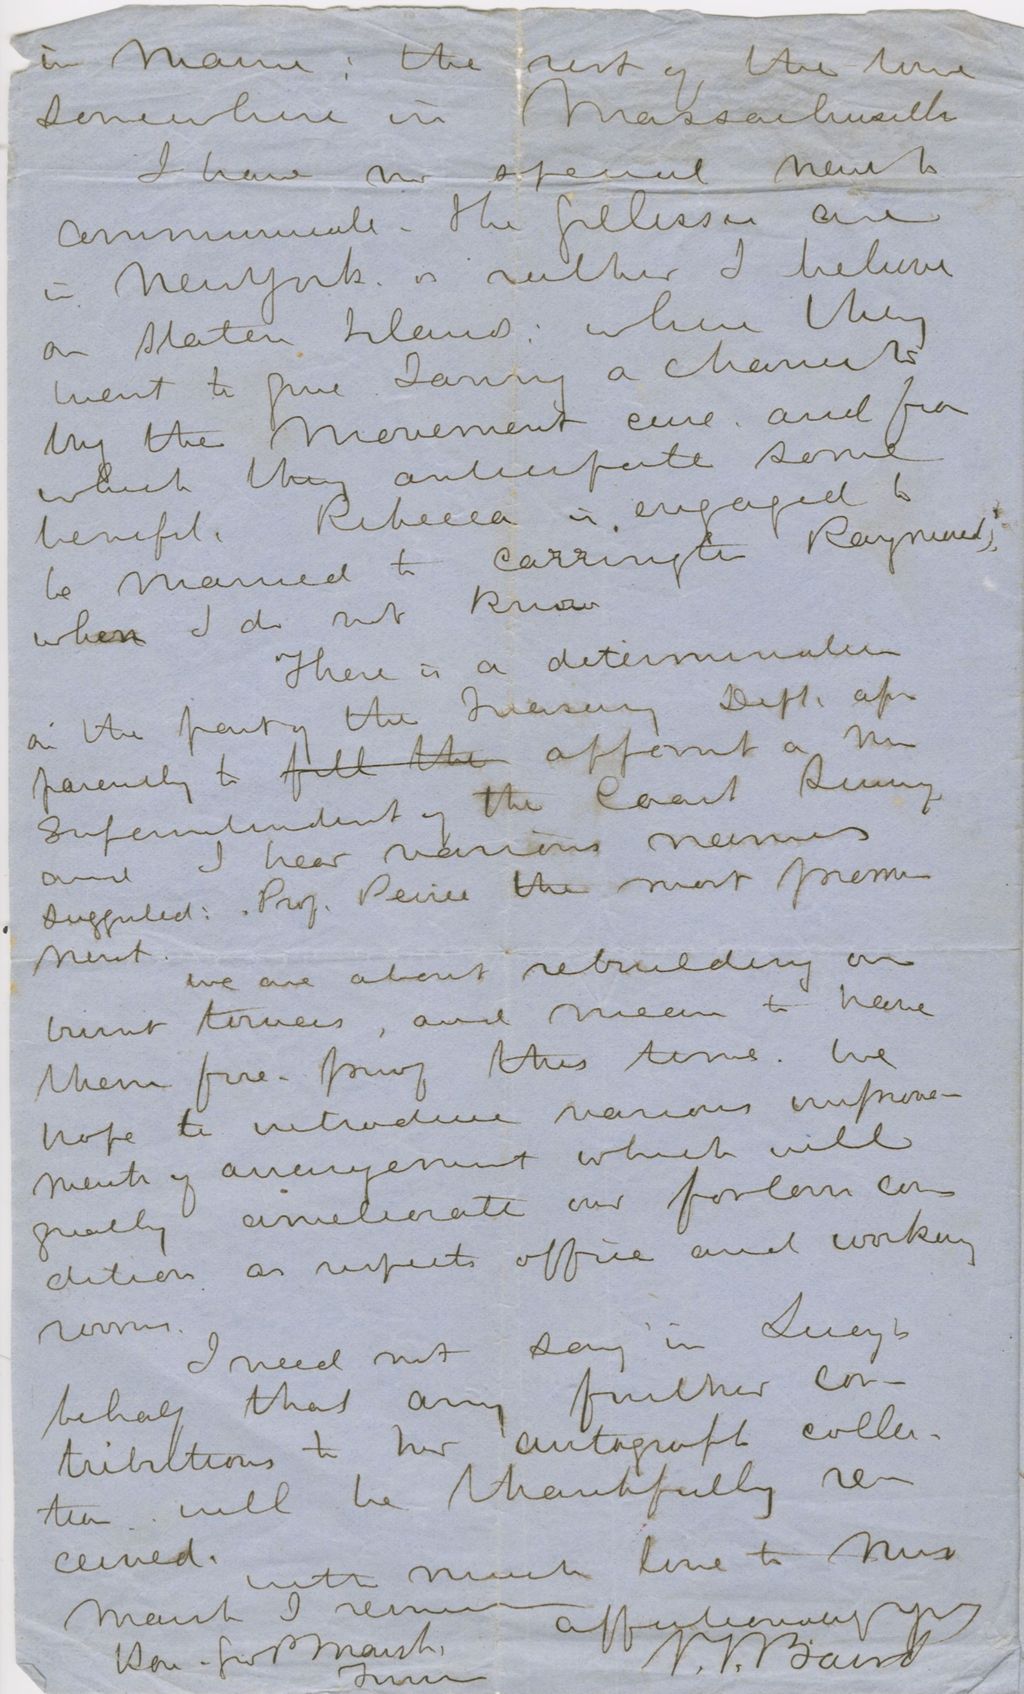 in Maine; the rest of the time
somewhere in Massachusetts
I have no special news to
communicate. The Gillisses are
in New York. or rather I believe
on Staten Island; where they
went to give Janny a chance to
try the Movement cure. and from
which they anticipate some
benefit. Rebecca is engaged to
be married to Carrington Raymond;
when I do not know
There is a determination
on the part of the Treasury Dept. ap
parently to fill the appoint a new
Superintendent of the Coast Survey
and I hear various names
suggested: Prof. Peirce the most promi
nent.
We are about rebuilding our
burnt towers, and mean to have
them fire-proof this time. We
hope to introduce various improve-
ments of arrangement which will
greatly ameliorate our forlorn con
dition as respects office and working
rooms.
I need not say in Lucy's
behalf that any further con-
tributions to her autograph collec-
tion will be thankfully re
ceived.
With much love to Mrs
Marsh I remain
affectionately yrs
S. F. Baird
Hon. Geo P Marsh.
Turin